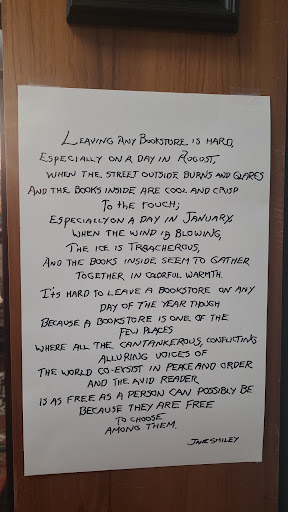 LEAVING ANY BOOKSTORE IS HARD,
ESPECIALLY ON A DAY IN AUGUST,
WHEN THE STREET OUTSIDE BURNS AND GLARES
AND THE BOOKS INSIDE ARE COOL AND CRISP
TO THE TOUCH;
ESPECIALLY ON A DAY IN JANUARY,
WHEN THE WIND IS BLOWING,
THE ICE IS TREACHEROUS,
AND THE BOOKS INSIDE SEEM TO GATHER
TOGETHER IN COLORFUL WARMTH.
IT'S HARD TO LEAVE A BOOKSTORE ON ANY
DAY OF THE YEAR THOUGH
BECAUSE A BOOKSTORE IS ONE OF THE
FEW PLACES
WHERE ALL THE CANTANKEROUS, CONFLICTING
ALLURING VOICES OF
THE WORLD CO-EXIST IN PEACE AND ORDER
AND THE AVID READER
IS AS FREE AS A PERSON CAN POSSIBLY BE
BECAUSE THEY ARE FREE
TO CHOOSE
AMONG THEM.
JANE SMILEY